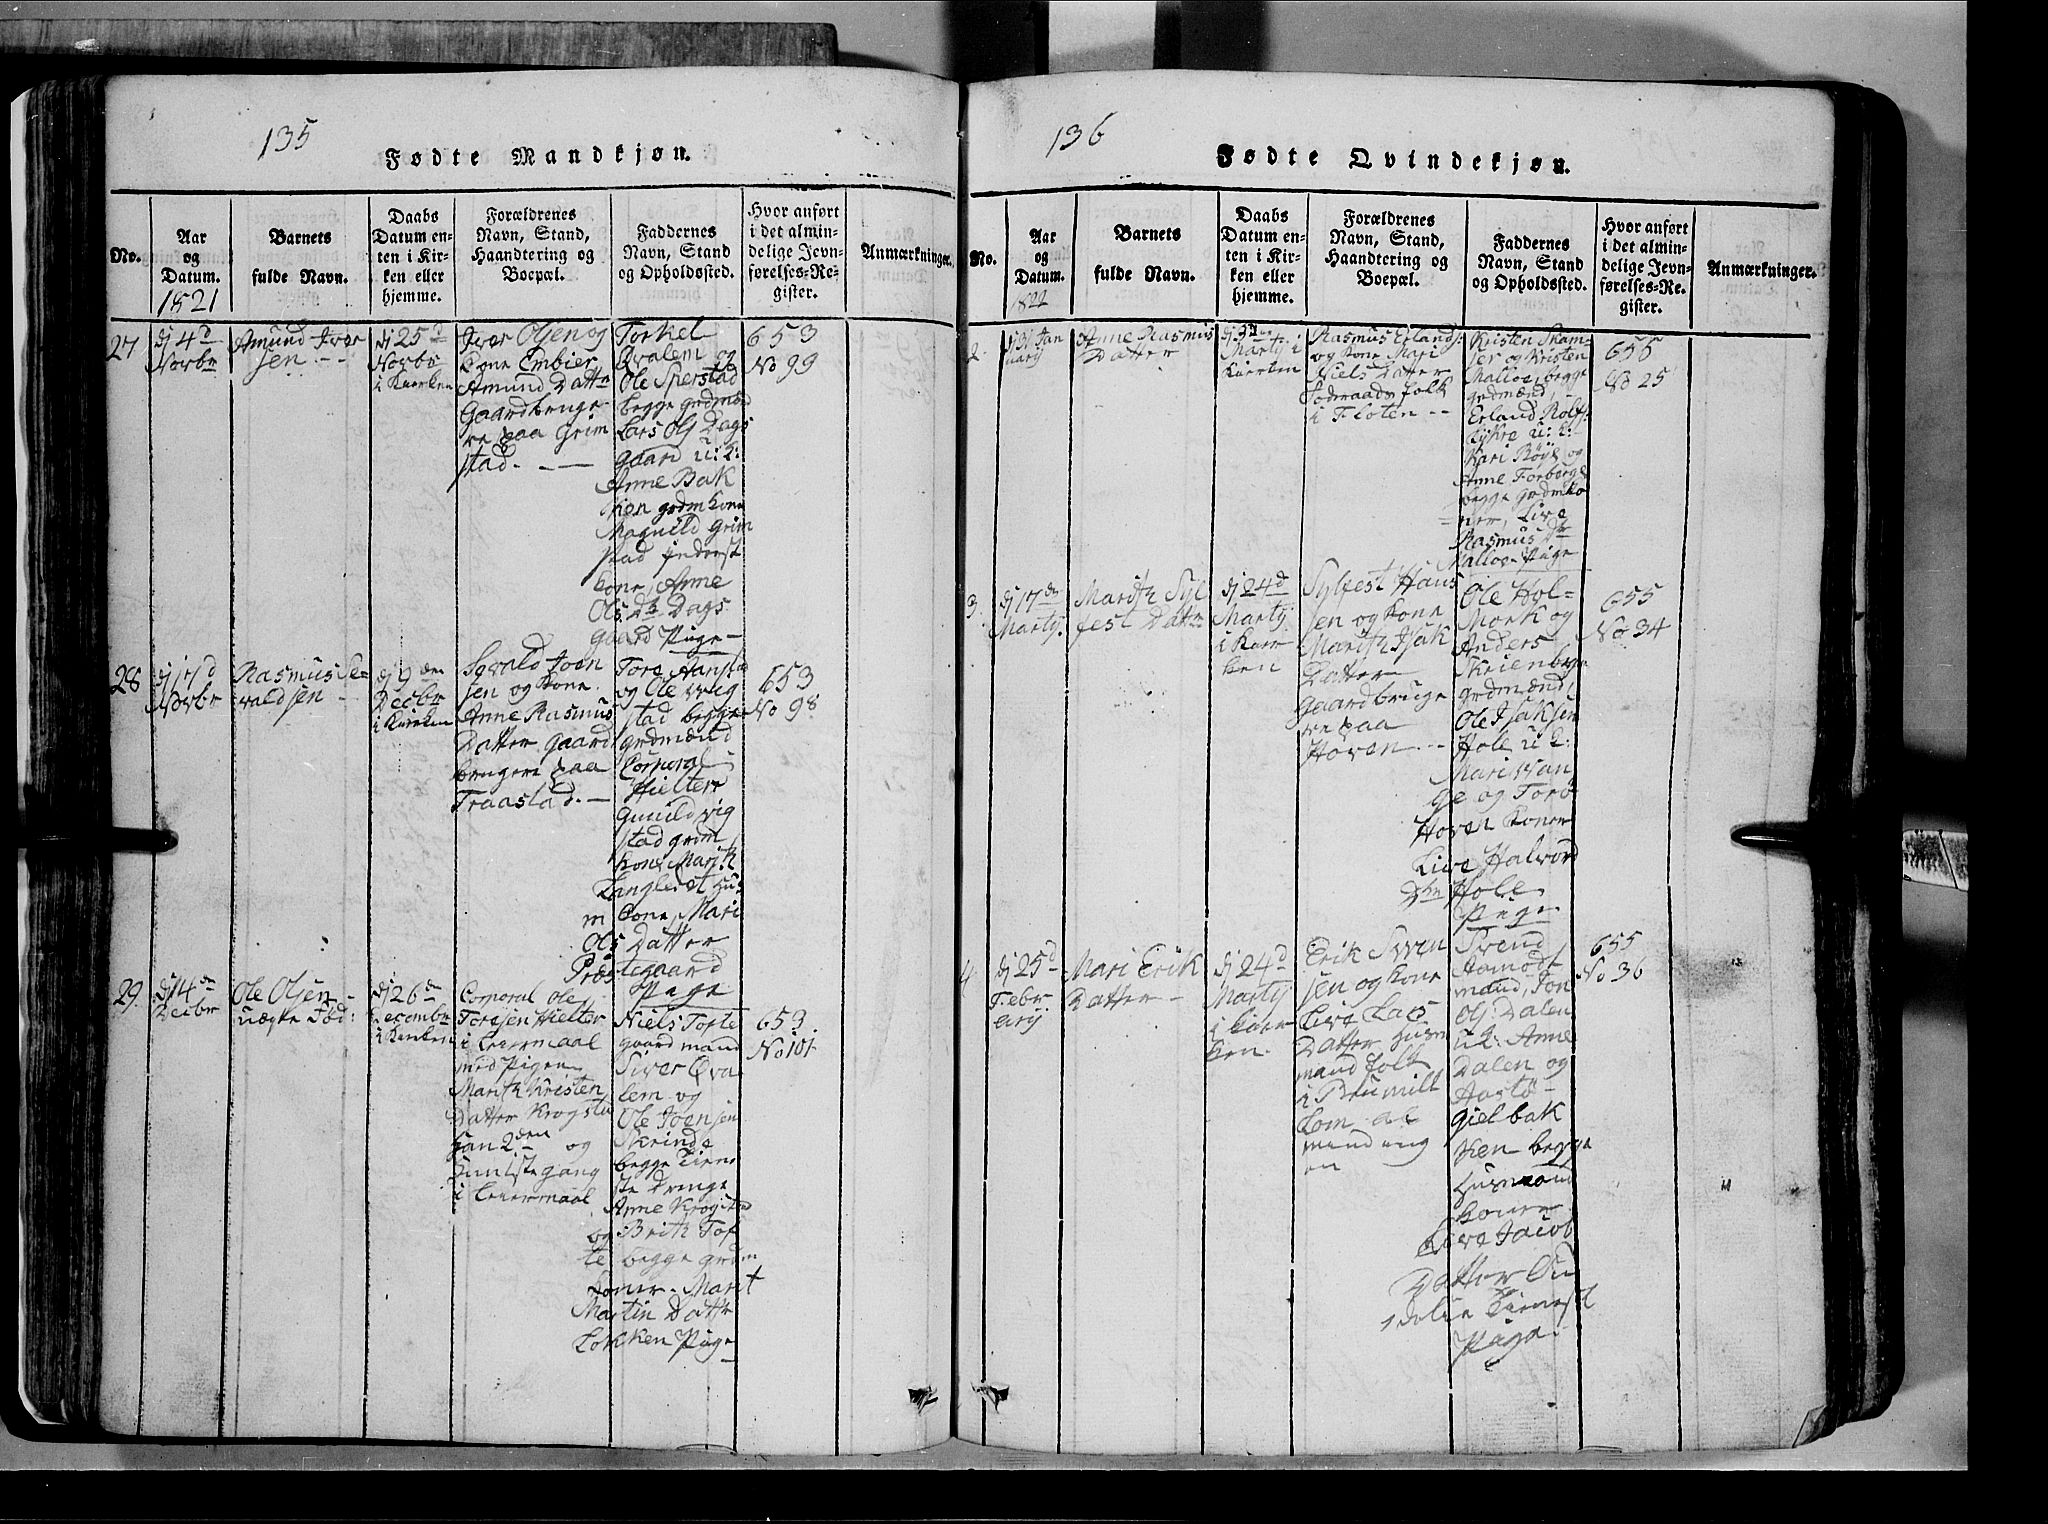 135
Fødte Mandkjøn.
No.
Aar
og
Datum.
1821
Barnets
fulde Navn.
Daabs
Datum en-
ten i Kir-
ken eller
hjemme.
Forældrenes
Navn, Stand,
Haandtering og
Boepæl.
Faddernes
Navn, Stand
og Opholdssted.
Hvor anført
i det almin-
delige Jevn-
førelses-Re-
gister.
Anmærkninger.
27
dj 4d
Novbr
Amund Iver
sen
dj 25d
Novbr
i Kierken
Iver Olsen og
Kone Embier
Amund Dattr
Gaardbruge
re paa Grim
stad.
Torkel
Qvalem og
Ole Sperstad
begge grdmænd
Lars Ols Dags
gaard u: k:
Anne Bak
ken grdm kone
Magnild Grim
stad
kone, Anne
Ols Dtr Dags
gaard Pige
653
No 99
28
dj 17d
Novbr
Rasmus Se
valdsen
dj 9den
Decbr
i Kierken
Sevald Joen
sen og Kone
Anne Rasmus
Datter Gaard
brugere paa
Traastad.
Tore
og Ole Vig
stad begge
grdmænd
Corporal
Hielter
Gunild Vig
stad grdm
kone, Marit
Hus
m kone, Mari
Ols Datter
Præstegaard
Pige
653
No 98
29
dj 14de
Decbr
Ole Olsen
uægte Fød:
dj 26de
Decembr
i Kierken
Corporal Ole
Toresen Hielter
i Leiermaal
med Pigen
Marith Kristen
Datter Krogsta
Han 2den og
Hun 1ste gang
i Leiermaal
Niels Tofte
gaardmand
Siver Qva
lem og
Ole Joensen
begge Tiene
ste Drenge
Anne Krogstad
og Brith Tof
te begge grdm
koner. Marit
Martin Dattr
Løkken Pige
653
No 101
136
Fødte Qvindekjøn.
No.
Aar
og
Datum.
1822
Barnets
fulde Navn.
Daabs
Datum en-
ten i Kir-
ken eller
hjemme.
Forældrenes
Navn, Stand,
Haandtering og
Boepæl.
Faddernes
Navn, Stand
og Opholdssted.
Hvor anført
i det almin-
delige Jevn-
førelses-Re-
gister.
Anmærkninger.
2
dj 31 Jan
uarij
Anne Rasmus
Datter
Martij i
Kierken
Rasmus Erlands:
og Kone Mari
Niels Datter
folk
i Floten
Kristen Skam-
ser og Kristen
Malloe, begge
grdmænd,
Erland Rolfs:
Lykre u: k:
Kari Røye og
Anne Forberge
begge grdmko
ner, Live
Rasmus Dtr
Malloe Pige
655
No 25
3
dj 17de
Martij.
Marith Syl
fest Dattr
dj 24d
Martij
i Kier
ken
Sylfest Hans
sen og Kone
Marith Isak
Datter
Gaardbruge
re paa
Hoven
Ole Hol-
mork og
Anders
grdmænd,
Ole Isaksen
Hole u k:
Mari Van
ge og Torø
Hoven Koner
Live Halvord
Dtr Hole
Pige
655
No 34
4
dj 25d
Febr
arij
Mari Erik
Datter
dj 24d
Martij
i Kier
ken.
Erik Sven
sen og Kone
Live Lars
Datter Husm
mand folk
i
Lom al
mending
en
Svend
Aamodt
mand, Jon
Ols: Dalen
u k: Anne
Dalen og
Aastø
Gielbak
ken begge
Husmand
koner
Live Jacob
Datter
Tienest
Pige.
655
No 36